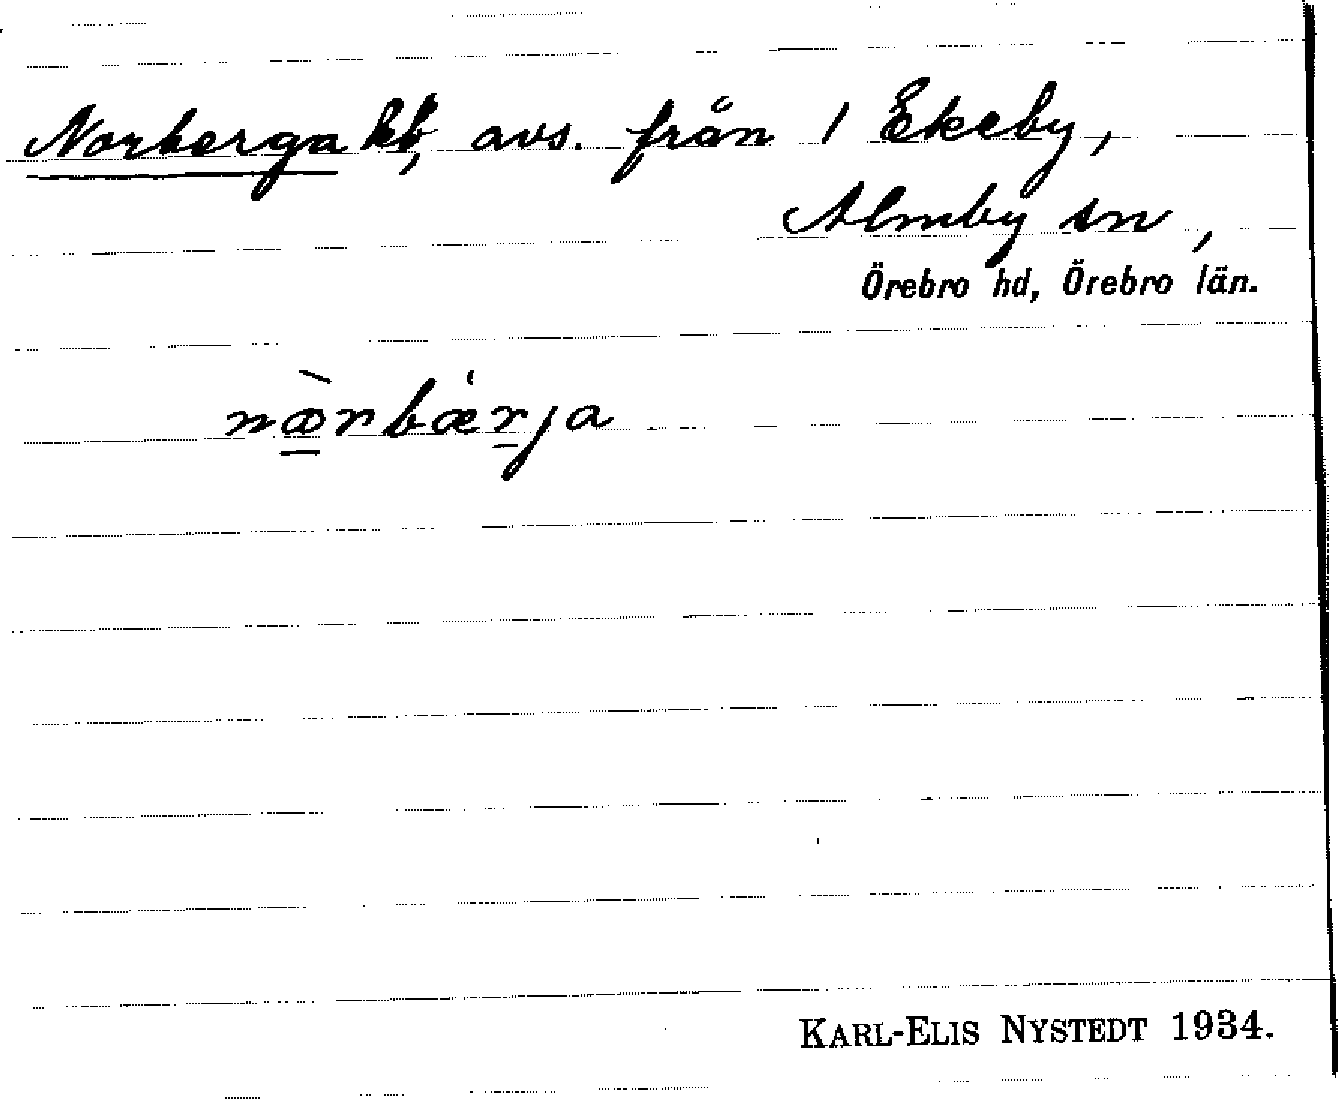 Norberga hb, avs. från 1 Ekeby,
Almby sn,
Örebro hd, Örebro län.
nærbærja
KARL-ELIS NYSTEDT 1934.